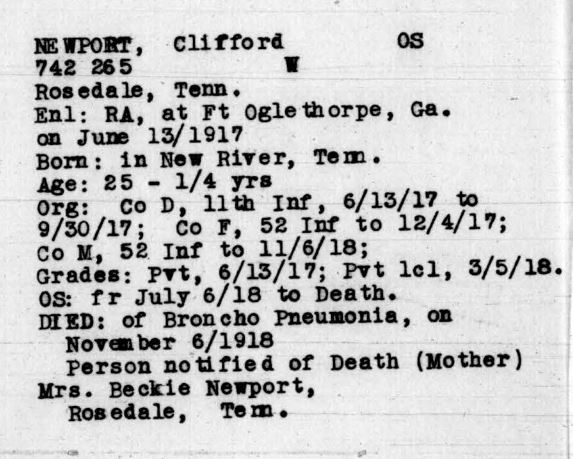 NEWPORT, Clifford OS
742 265 W
Rosedale, Tenn.
Enl: RA, at Ft Oglethorpe, Ga.
on June 13/1917
Born: in New River, Tenn.
Age: 25 - 1/4 yrs
Org: Co D, 11th Inf, 6/13/17 to
9/30/17; Co F, 52 Inf to 12/4/17;
Co M, 52 Inf to 11/6/18;
Grades: Pvt, 6/13/17; Pvt 1cl, 3/5/18.
OS: fr July 6/18 to Death.
DIED: of Broncho Pneumonia, on
November 6/1918
Person notified of Death (Mother)
Mrs. Beckie Newport,
Rosedale, Tenn.